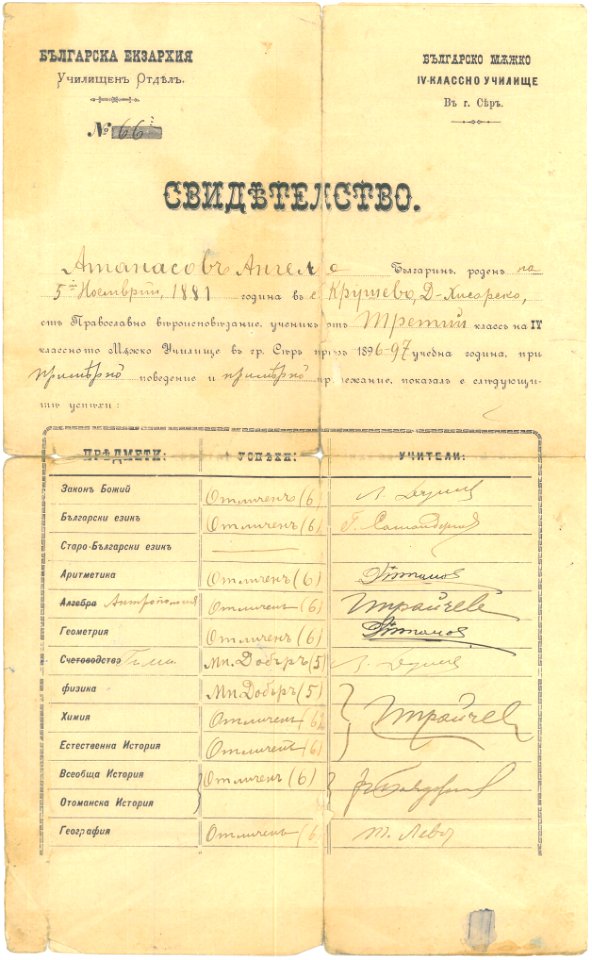 БЪЛГАРСКА ЕКЗАРХИЯ
Училищенъ Отдѣлъ.
№ 66
БЪЛГАРСКО МѪЖКО
IV-КЛАССНО УЧИЛИЩЕ
Въ г. Сѣръ.
СВИДѢТЕЛСТВО.
Атанасовъ Ангелъ Българинъ, роденъ на
5 Ноемврий, 1881 година въ с. Крушево, Д-Хисарско,
отъ Православно вѣроисповѣдание, ученикъ отъ Третий классъ на IV
классното Мѫжко Училище въ гр. Сѣръ прѣзъ 1896-97 учебна година, при
примѣрно поведение и примѣрно прилежание, показалъ е слѣдующи-
тѣ успѣхи:
ПРѢДМЕТИ: УСПѢХИ: УЧИТЕЛИ:
Законъ Божий Отличенъ (6)
Български езикъ Отличенъ (6)
Старо-Български езикъ
Аритметика Отличенъ (6)
Алгебра Антропология Отличенъ (6) Трайчевъ
Геометрия Отличенъ (6)
Счетоводство Мн. Добъръ (5)
физика Мн. Добъръ (5)
Химия Отличенъ (6) Трайчевъ
Естественна История Отличенъ (6)
Всеобща История Отличенъ (6)
Отоманска История
География Отличенъ (6)